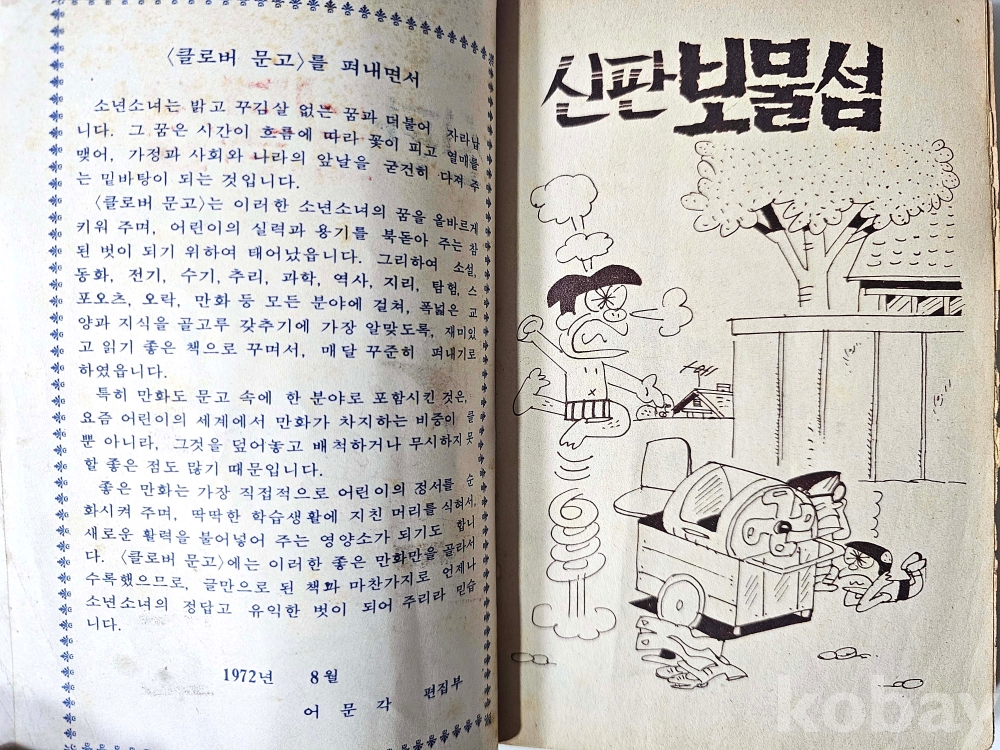 〈클로버 문고〉를 펴내면서
소년소녀는 밝고 꾸김살 없는 꿈과 더불어 자라납
니다. 그 꿈은 시간이 흐름에 따라 꽃이 피고 열매를
맺어, 가정과 사회와 나라의 앞날을 굳건히 다져 주
는 밑바탕이 되는 것입니다.
〈클로버 문고〉는 이러한 소년소녀의 꿈을 올바르게
키워 주며, 어린이의 실력과 용기를 북돋아 주는 참
된 벗이 되기 위하여 태어났읍니다. 그리하여 소설,
동화, 전기, 수기, 추리, 과학, 역사, 지리, 탐험, 스
포오츠, 오락, 만화 등 모든 분야에 걸쳐, 폭넓은 교
양과 지식을 골고루 갖추기에 가장 알맞도록, 재미있
고 읽기 좋은 책으로 꾸며서, 매달 꾸준히 펴내기로
하였읍니다.
특히 만화도 문고 속에 한 분야로 포함시킨 것은,
요즘 어린이의 세계에서 만화가 차지하는 비중이 클
뿐 아니라, 그것을 덮어놓고 배척하거나 무시하지 못
할 좋은 점도 많기 때문입니다.
좋은 만화는 가장 직접적으로 어린이의 정서를 순
화시켜 주며, 딱딱한 학습생활에 지친 머리를 식혀서,
새로운 활력을 불어넣어 주는 영양소가 되기도 합니
다. 〈클로버 문고〉에는 이러한 좋은 만화만을 골라서
수록했으므로, 글만으로 된 책과 마찬가지로 언제나
소년소녀의 정답고 유익한 벗이 되어 주리라 믿습
니다.
1972년 8월
어 문 각 편집부
신판 보물섬
kobay